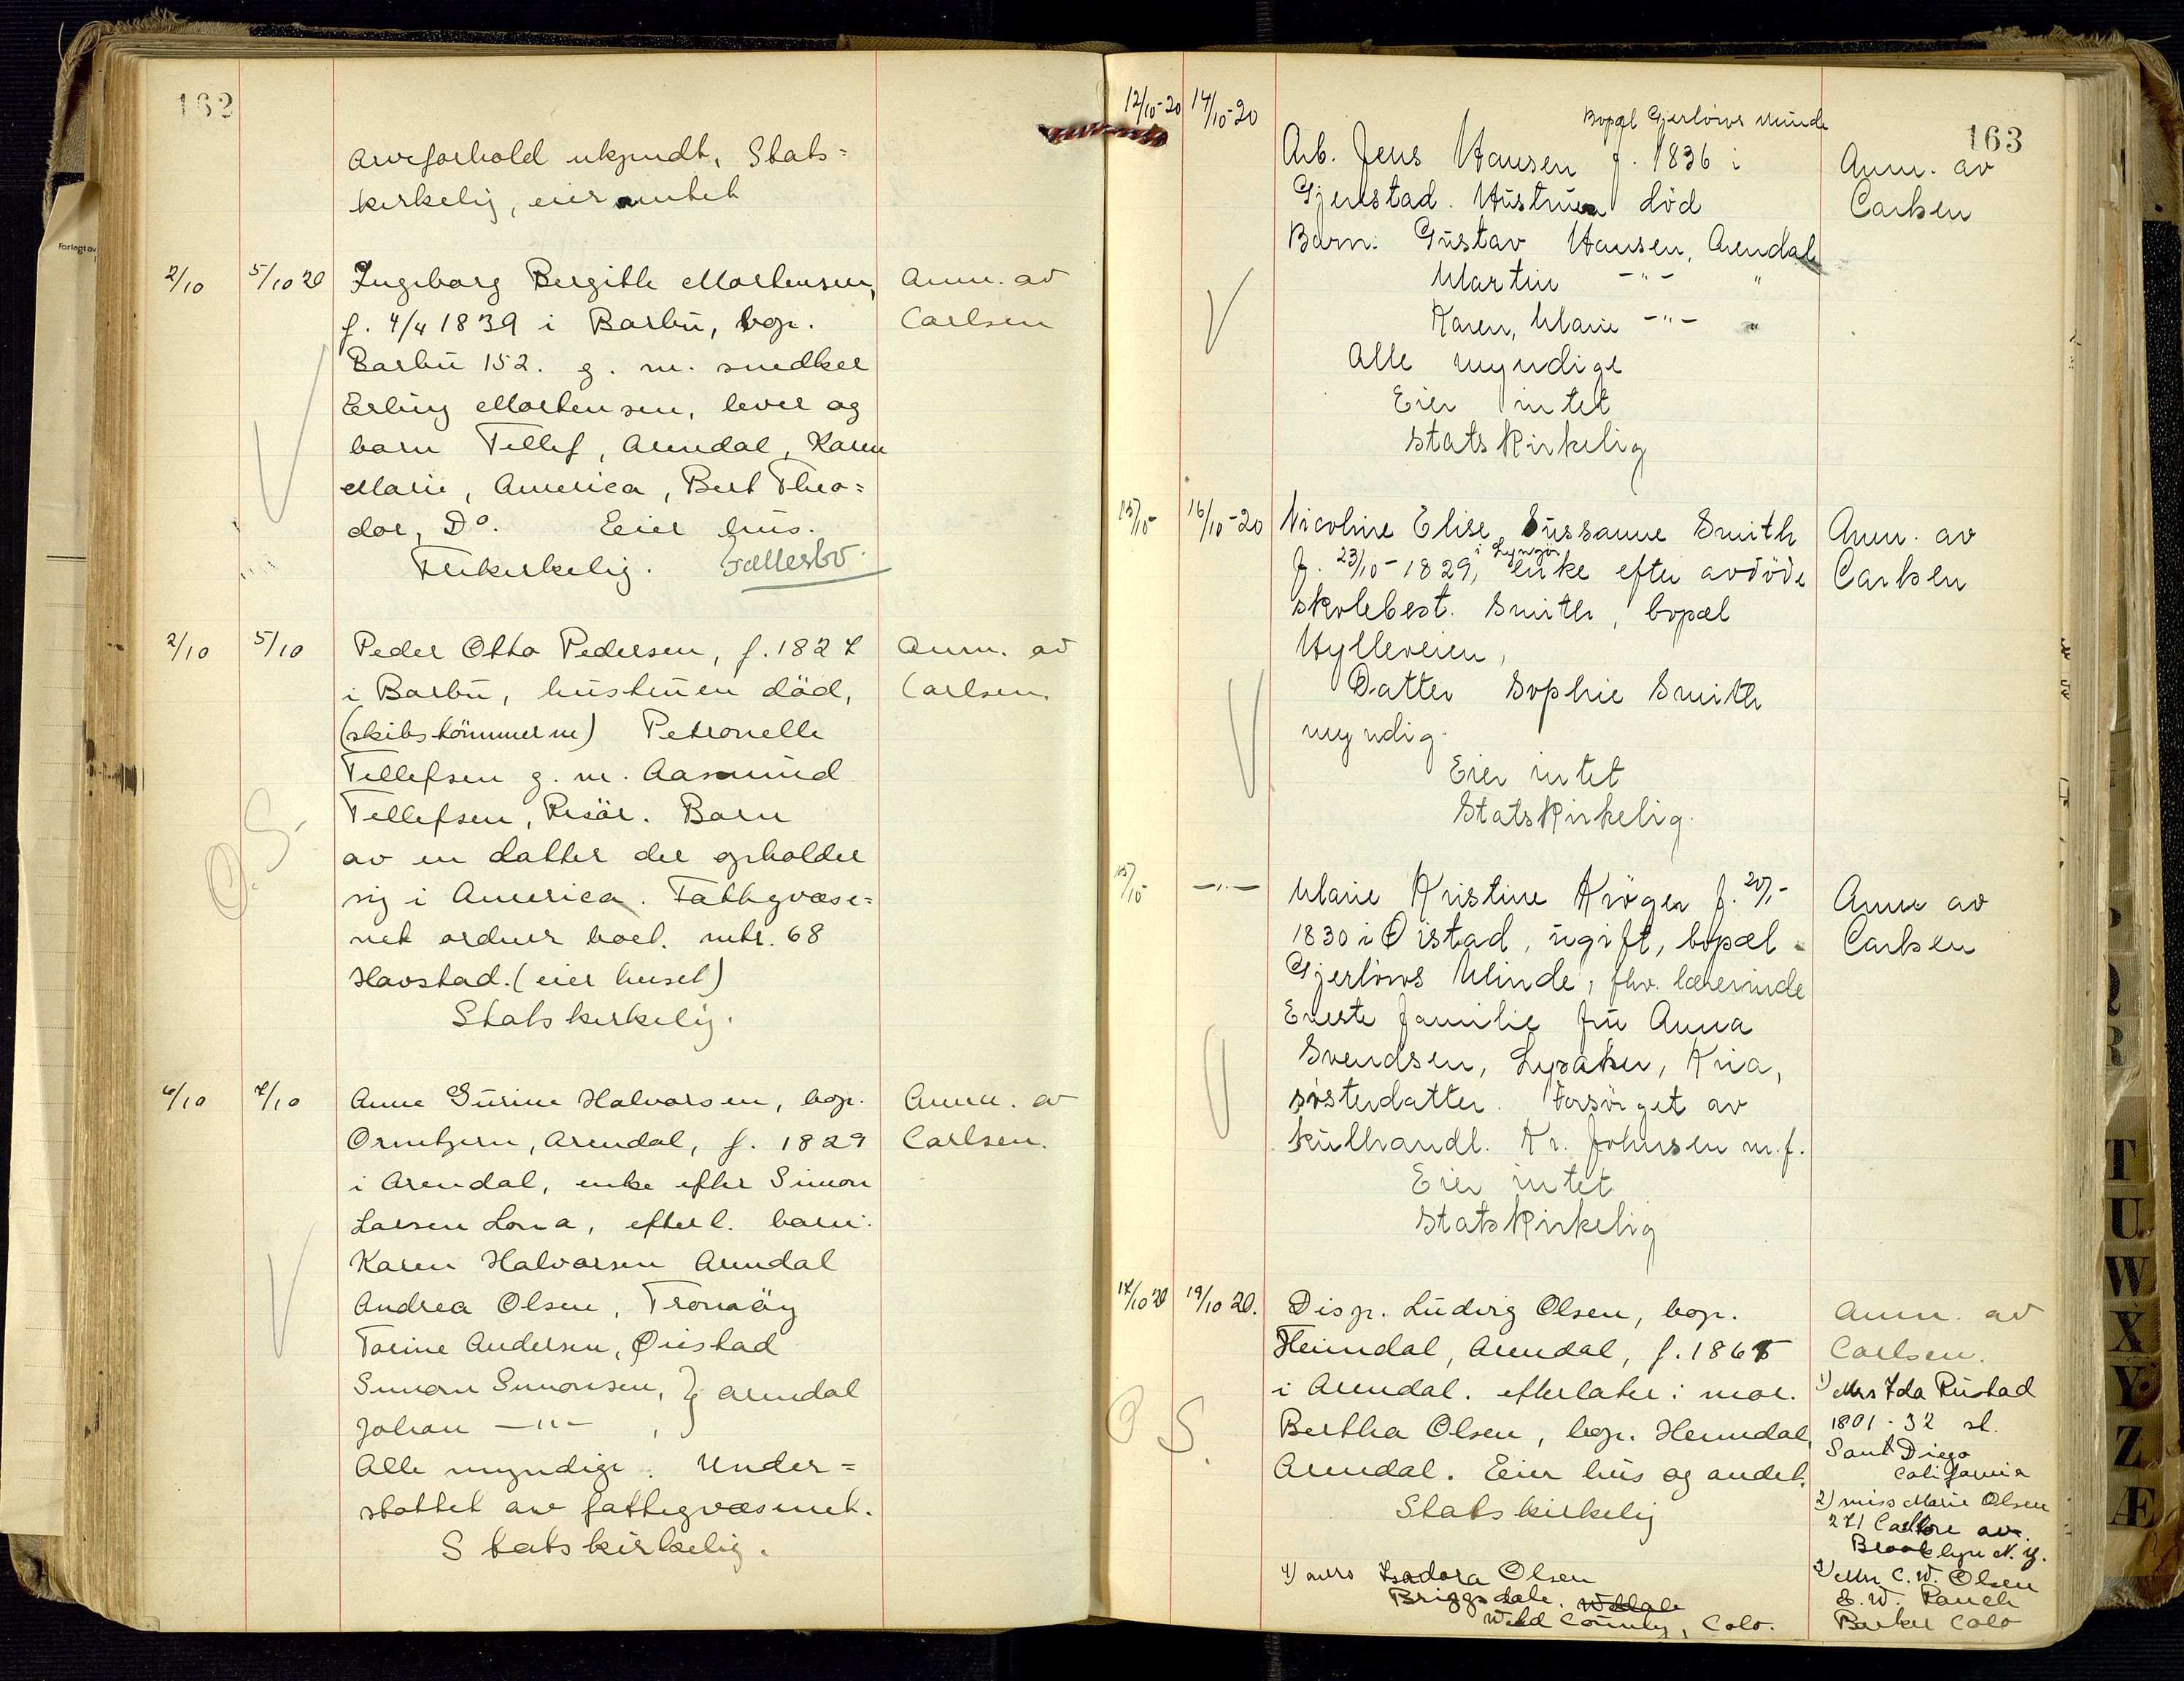 162
Arveforhold ukjendt, Stats=
kirkelig, eier intet
2/10 5/10 20 Ingeborg Bergitte Mortensen, Anm. av
f. 4/4 1839 i Barbu, bop. Carlsen
Barbu 152. g. m. snedker
Erling Mortensen, lever og
barn Tellef, Arendal, Karen
Marie, America, Bert Theo=
dor, Do. Eier hus.
Frikirkelig. Fællesbo.
2/10 5/10 Peder Otto Pedersen, f. 1827 Anm. av
i Barbu, hustruen död, Carlsen.
(skibstömmerm) Petronelle
Tellefsen g. m. Aasmund
Tellefsen, Risör. Barn
av en datter der opholder
sig i America. Fattigvæse=
net ordner boet. mtr. 68
Havstad. (eier huset)
Statskirkelig.
O. S.
6/10 7/10 Anne Gurine Halvorsen, bop. Anm. av
Ormtjern, Arendal, f. 1829 Carlsen.
i Arendal, enke efter Simon
Larsen Lona, efterl. barn:
Karen Halvorsen Arendal
Andrea Olsen, Tromöy
Torine Andersen, Øiestad
Simon Simonsen, } Arendal
Johan —"— ,
Alle myndige. Under=
stöttet av fattigvæsenet.
Statskirkelig.
163
12/10-20 14/10-20 Bopæl Gjerlöws Minde
Arb. Jens Hansen f. 1836 i Anm. av
Gjerestad. Hustruen död Carlsen
Barn: Gustav Hansen, Arendal
Martin —"— "
Karen, Marie —"— "
Alle myndige
Eier intet
Statskirkelig
15/10- 16/10-20 Nicoline Elise Sussanne Smith Anm. av
i Lyngör
f. 23/10-1829, enke efter avdöde Carlsen
skolebest. Smith, bopæl
Hylleveien,
Datter Sophie Smith
myndig.
Eier intet
Statskirkelig.
15/10- —"— Marie Kristine Kröger f. Anm av
1830 i Öistad, ugift, bopæl Carlsen
Gjerlöws Minde, fhv. lærerinde
Eneste familie fru Anna
Svendsen, Lysaker, Kria,
sösterdatter. Forsörget av
kulhandl. Kr. Johnsen m.f.
Eier intet
Statskirkelig
17/10 20 19/10 20. Disp. Ludvig Olsen, bop. Anm. av
Heimdal, Arendal, f. 1865 Carlsen.
i Arendal. efterlater: mor.
Bertha Olsen, bop. Heimdal,
Arendal. Eier hus og andet.
Statskirkelig
O S.
1) Mrs Ida Rustad
1801 - 32 st.
Sant Diego
California
2) miss Marie Olsen
271 av.
Brooklyn N.Y.
3) Mr. C. W. Olsen
S. W. Ranch
Barker Colo
4) mrs Isadora Olsen
Briggsdale.
Weld County, Colo.